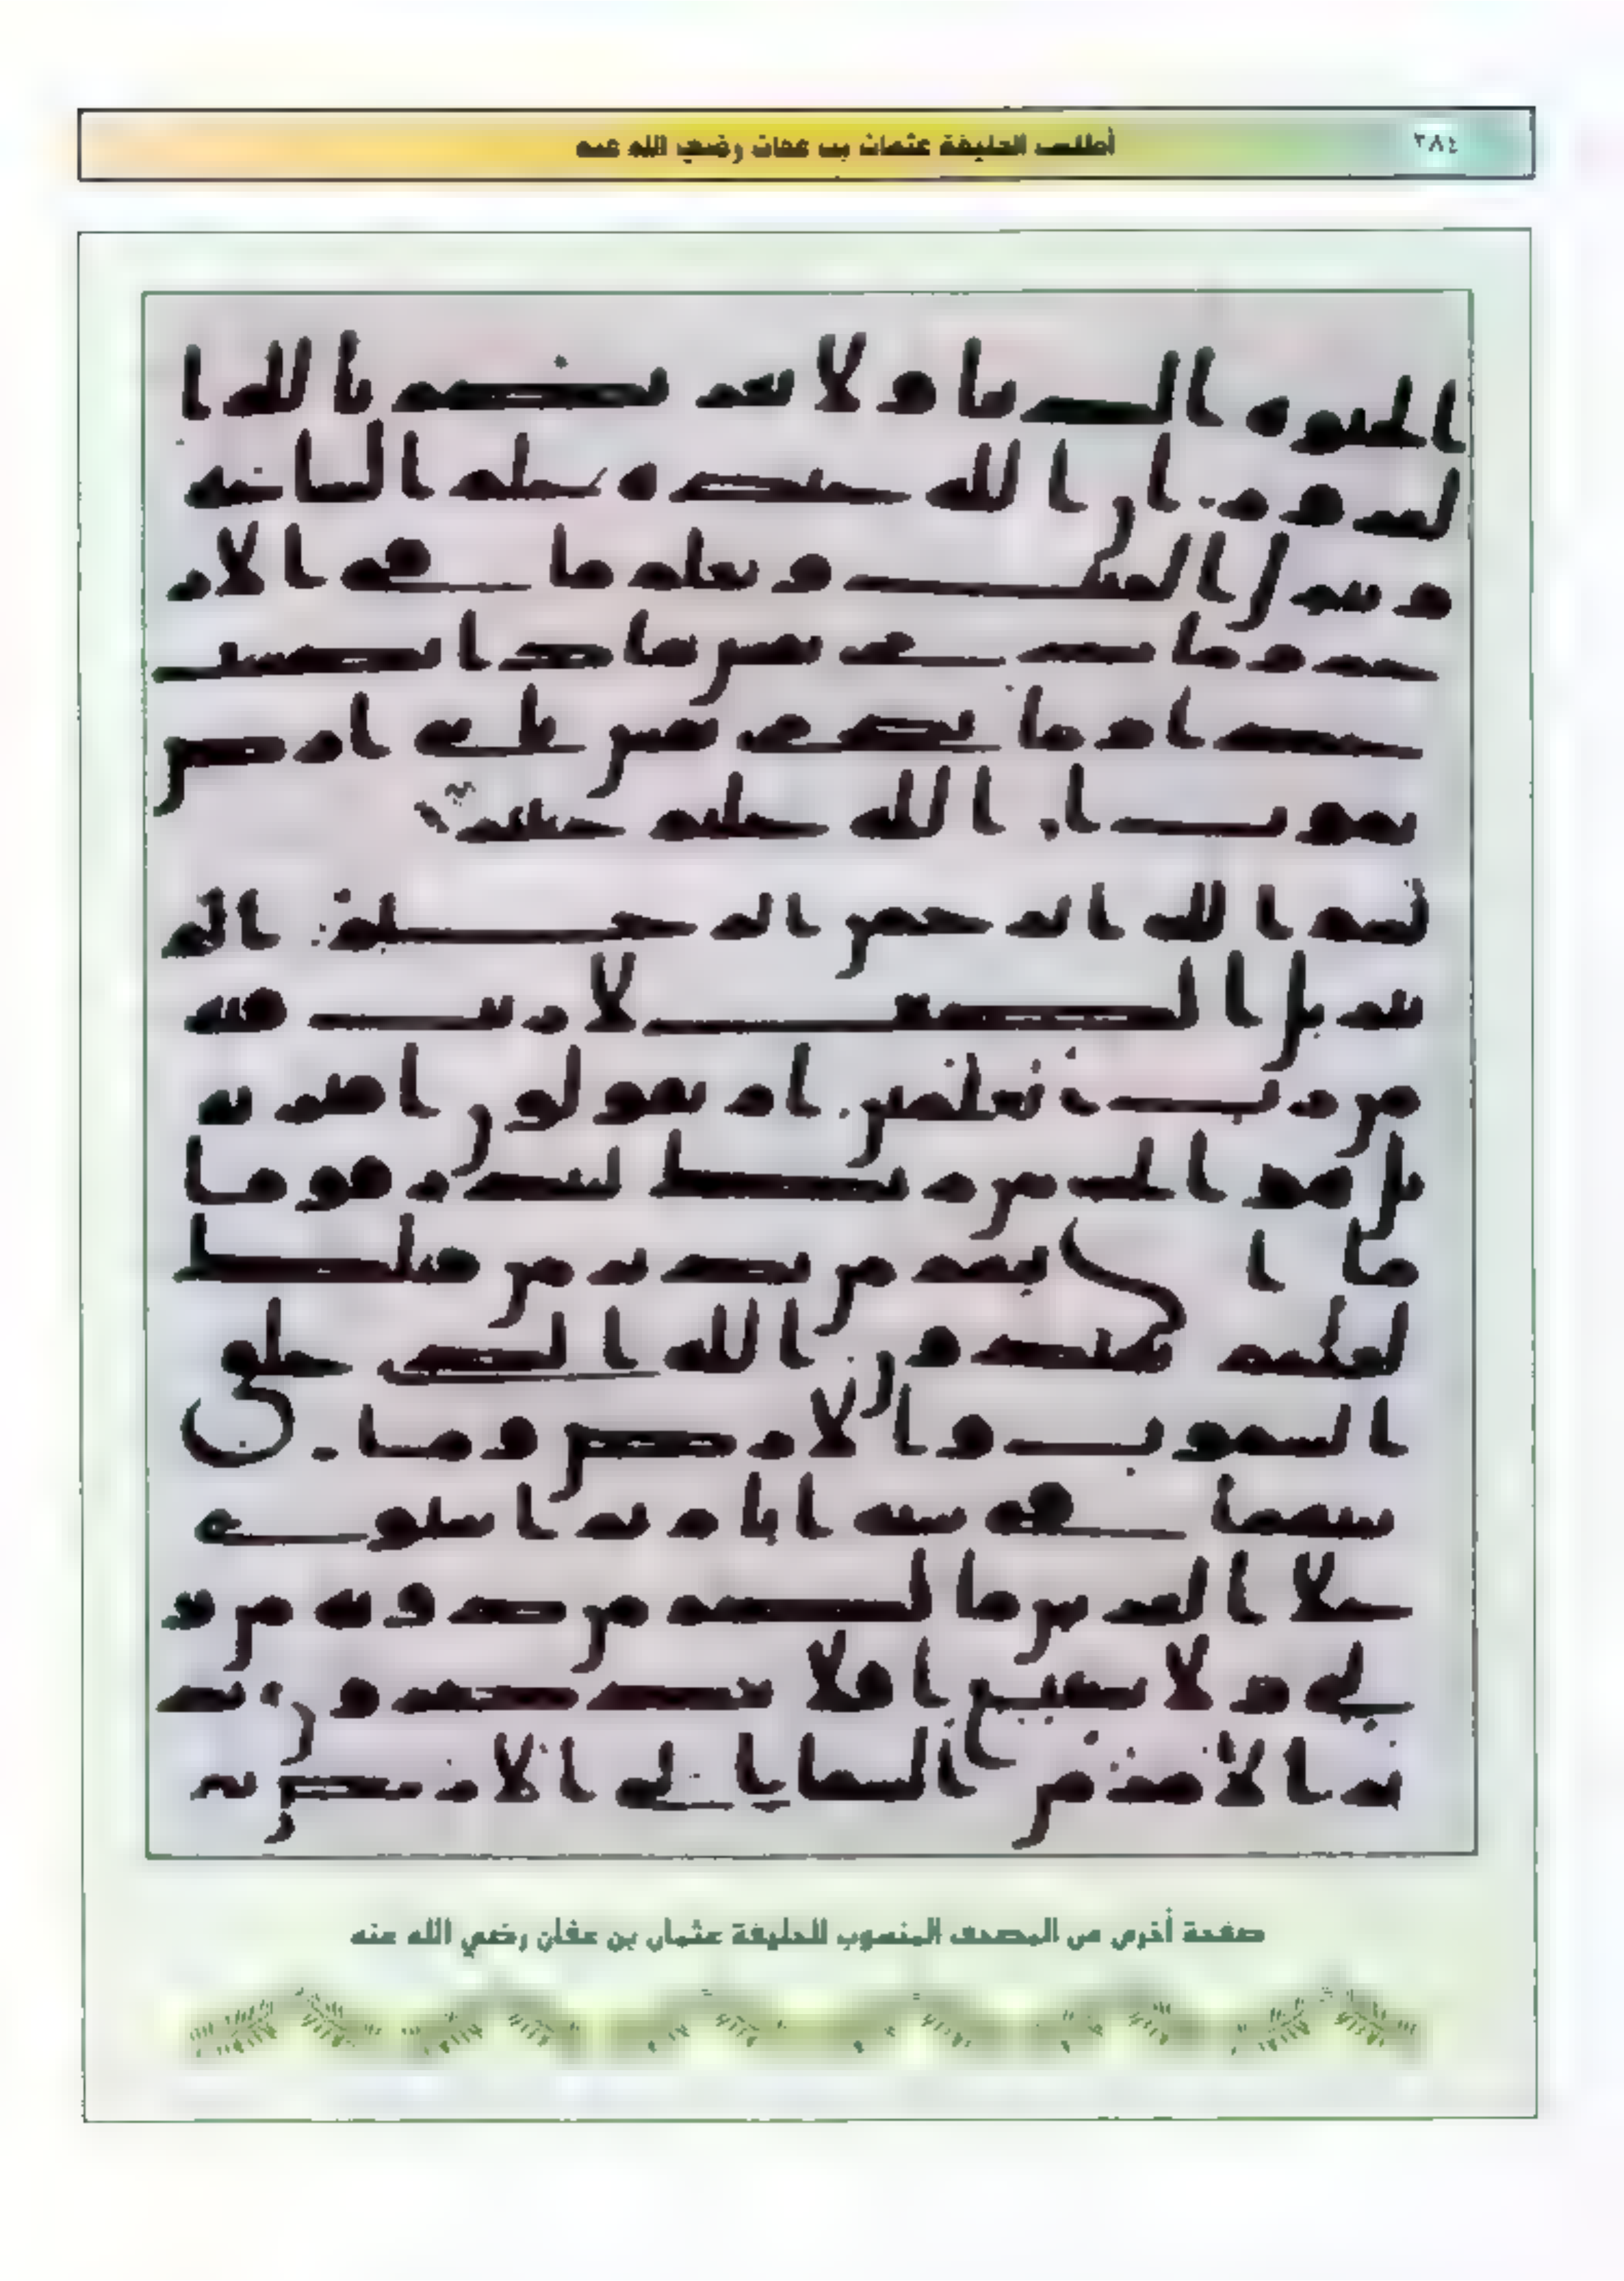 ٢٨٤
أطلس الخليفة عثمان بن عفان رضي الله عنه
الحيوه الدنيا ولا يغرنكم بالله ا
لغرور ان الله عنده علم الساعه
وينزل الغيث ويعلم ما في الار
حم وما تدري نفس ماذا تكسب
غدا وما تدري نفس باي ارض
تموت ان الله عليم خبير
بسم الله الرحمن الرحيم الم
تنزيل الكتب لا ريب فيه
من رب العلمين ام يقولون افتريه
بل هو الحق من ربك لتنذر قوما
ما اتيهم من نذير من قبلك
لعلهم يهتدون الله الذي خلق
السموت والارض وما
بينهما في سته ايام ثم استوي
علي العرش ما لكم من دونه من و
لي ولا شفيع افلا تتذكرون يد
بر الامر من السما الي الارض ثم
صفحة أخرى من المصحف المنسوب للخليفة عثمان بن عفان رضي الله عنه